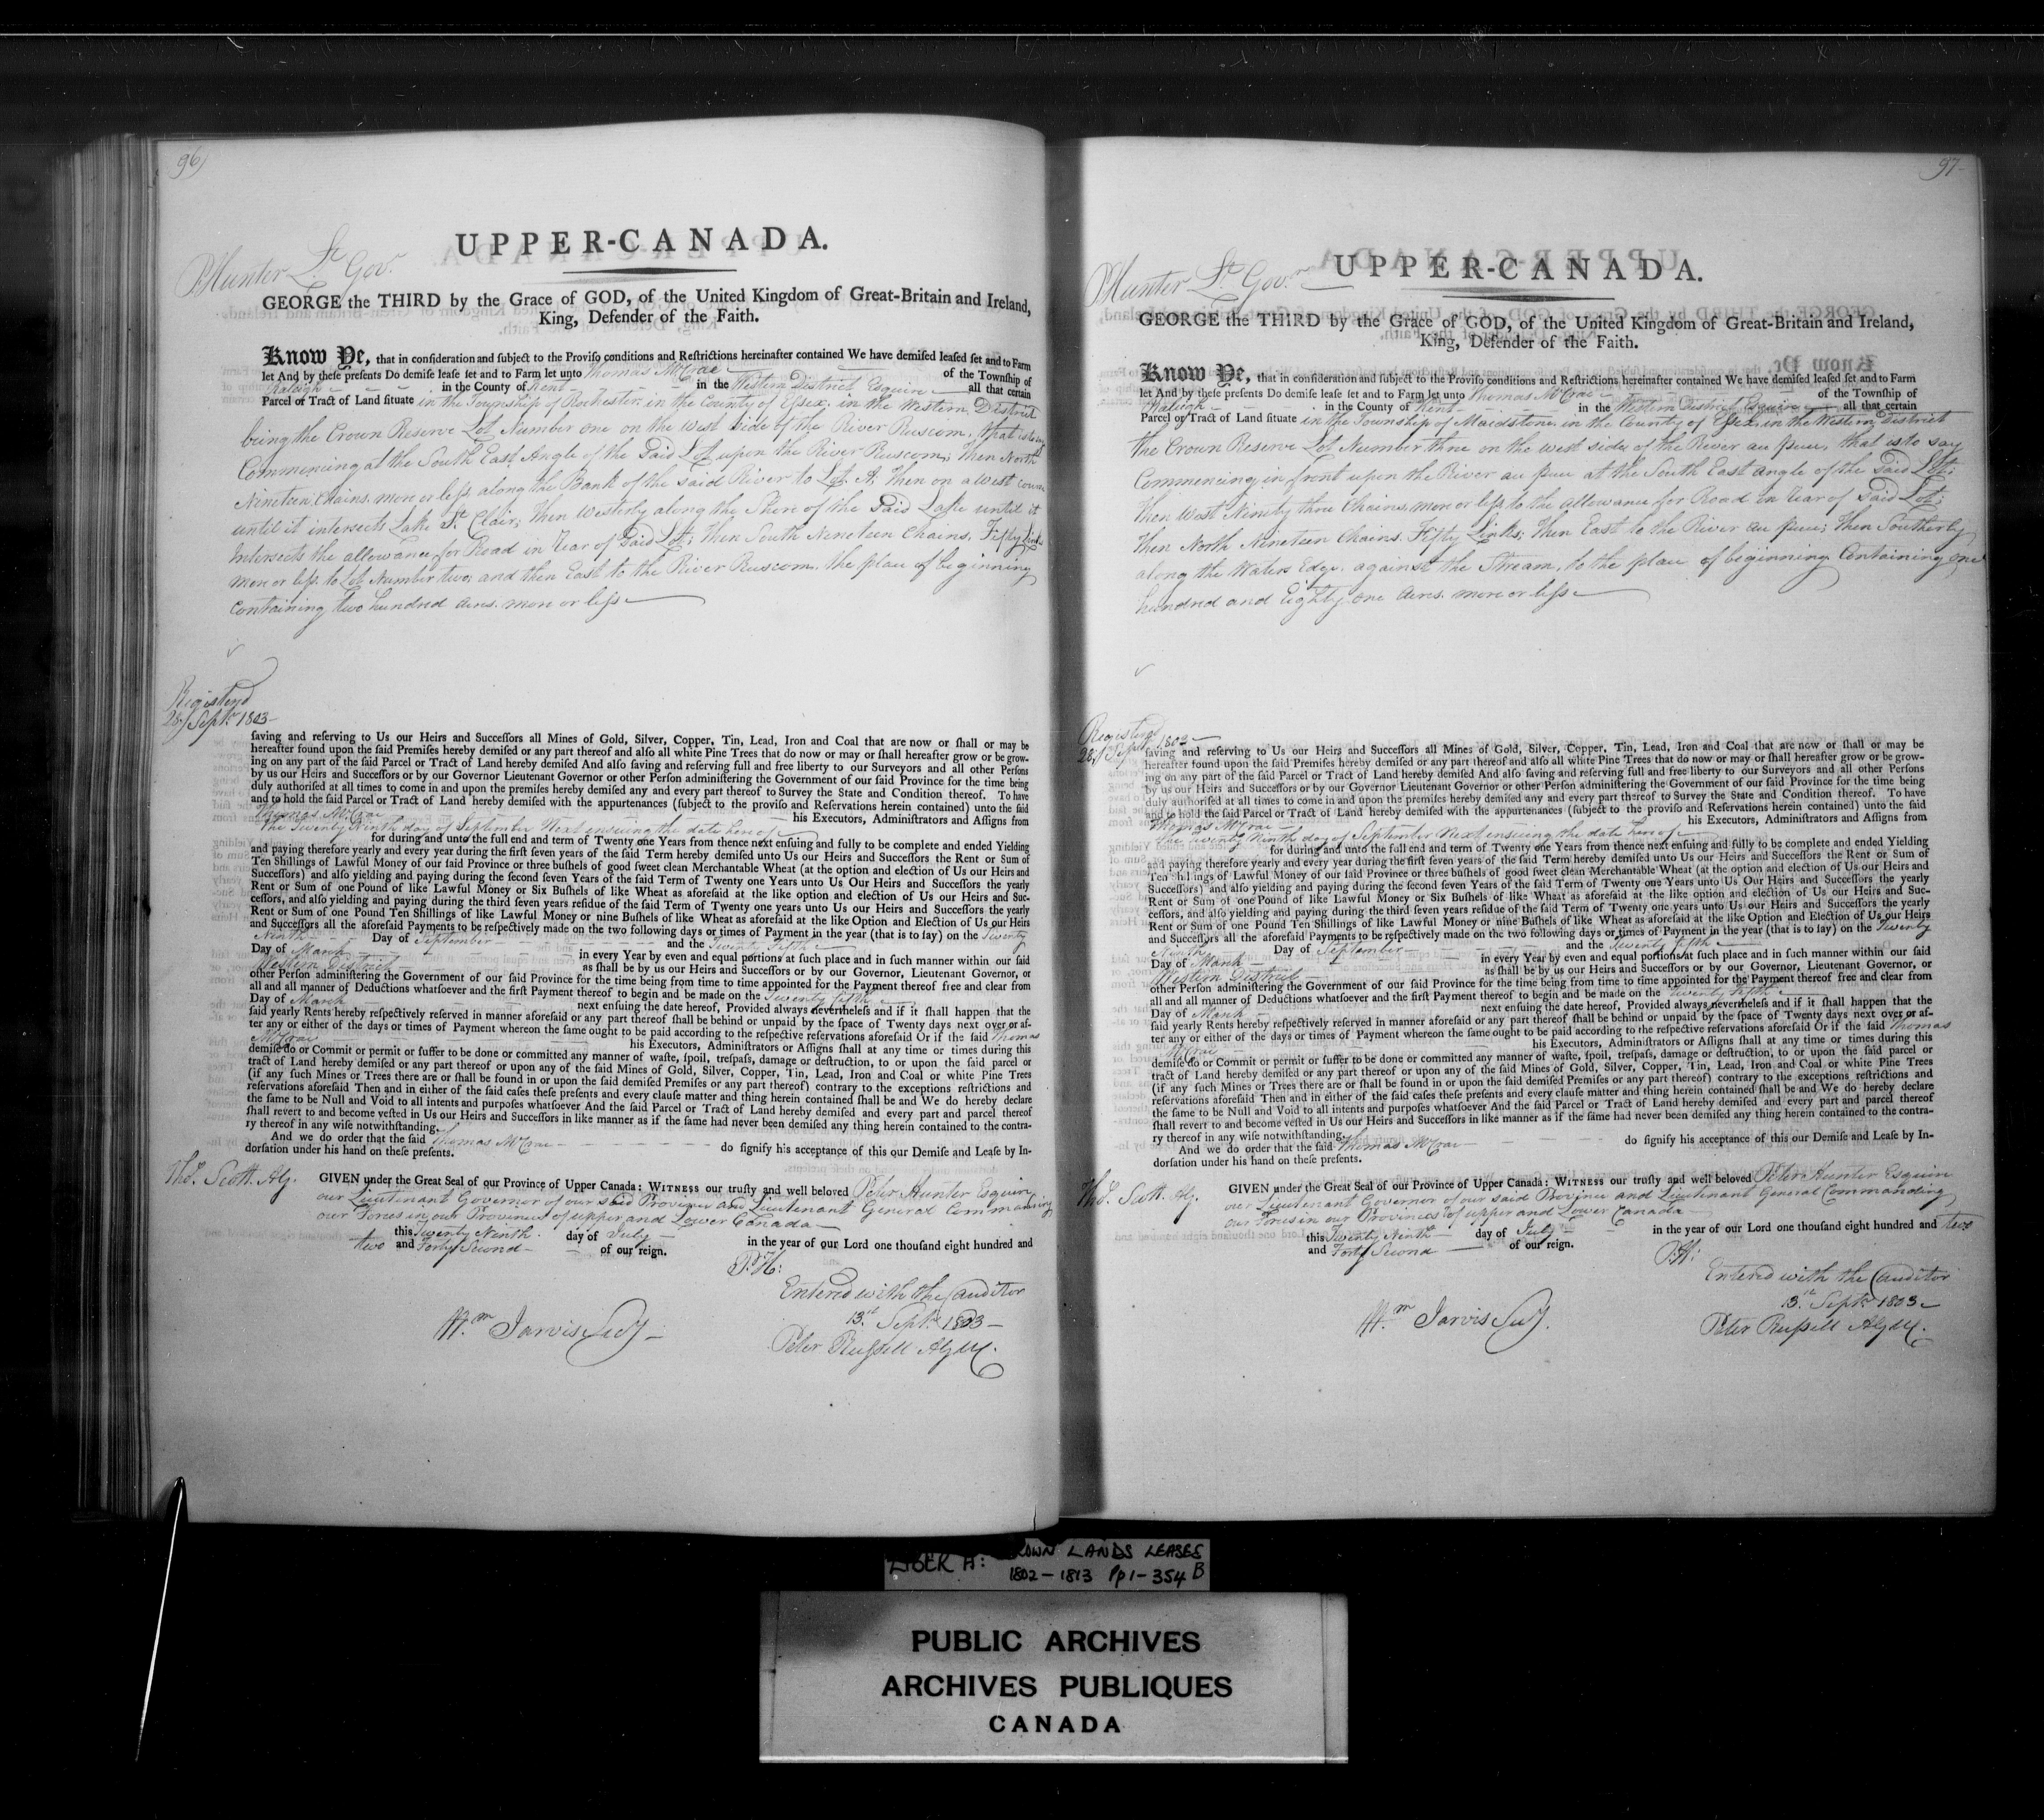 96
UPPER-CANADA.
P Hunter Lt. Govr.
GEORGE the THIRD by the Grace of GOD, of the United Kingdom of Great-Britain and Ireland,
King, Defender of the Faith.
Know Ye, that in consideration and subject to the Proviso conditions and Restrictions hereinafter contained We have demised leased set and to Farm
let And by these presents Do demise lease set and to Farm let unto Thomas McCrae of the Township of
Raleigh in the County of Kent in the Western District Esquire all that certain
Parcel or Tract of Land situate in the Township of Rochester in the County of Essex in the Western District
being the Crown Reserve Lot Number one on the west side of the River Ruscom, that is to say
Commencing at the South East Angle of the said Lot upon the River Ruscom; Then North
Nineteen Chains more or less along the Bank of the said River to Lot A; Then on a West course
until it intersects Lake St. Clair; Then Westerly along the Shore of the Said Lake until it
Intersects the allowance for Road in rear of said Lot; Then South Nineteen Chains, Fifty Links
more or less to Lot Number two; and then East to the River Ruscom, the place of beginning
Containing two hundred acres more or less
Registered
28/ Septr. 1803
saving and reserving to Us our Heirs and Successors all Mines of Gold, Silver, Copper, Tin, Lead, Iron and Coal that are now or shall or may be
hereafter found upon the said Premises hereby demised or any part thereof and also all white Pine Trees that do now or may or shall hereafter grow or be grow-
ing on any part of the said Parcel or Tract of Land hereby demised And also saving and reserving full and free liberty to our Surveyors and all other Persons
by us our Heirs and Successors or by our Governor Lieutenant Governor or other Person administering the Government of our said Province for the time being
duly authorised at all times to come in and upon the premises hereby demised any and every part thereof to Survey the State and Condition thereof. To have
and to hold the said Parcel or Tract of Land hereby demised with the appurtenances (subject to the proviso and Reservations herein contained) unto the said
Thomas McCrae his Executors, Administrators and Assigns from
the Twenty Ninth day of September Next ensuing the date hereof
for during and unto the full end and term of Twenty one Years from thence next ensuing and fully to be complete and ended Yielding
and paying therefore yearly and every year during the first seven years of the said Term hereby demised unto Us our Heirs and Successors the Rent or Sum of
Ten Shillings of Lawful Money of our said Province or three bushels of good sweet clean Merchantable Wheat (at the option and election of Us our Heirs and
Successors) and also yielding and paying during the second seven Years of the said Term of Twenty one Years unto Us Our Heirs and Successors the yearly
Rent or Sum of one Pound of like Lawful Money or Six Bushels of like Wheat as aforesaid at the like option and election of Us our Heirs and Suc-
cessors, and also yielding and paying during the third seven years residue of the said Term of Twenty one years unto Us our Heirs and Successors the yearly
Rent or Sum of one Pound Ten Shillings of like Lawful Money or nine Bushels of like Wheat as aforesaid at the like Option and Election of Us our Heirs
and Successors all the aforesaid Payments to be respectively made on the two following days or times of Payment in the year (that is to say) on the Twenty
Ninth Day of September and the Twenty fifth
Day of March in every Year by even and equal portions at such place and in such manner within our said
Western District as shall be by us our Heirs and Successors or by our Governor, Lieutenant Governor, or
other Person administering the Government of our said Province for the time being from time to time appointed for the Payment thereof free and clear from
all and all manner of Deductions whatsoever and the first Payment thereof to begin and be made on the Twenty fifth
Day of March next ensuing the date hereof, Provided always nevertheless and if it shall happen that the
said yearly Rents hereby respectively reserved in manner aforesaid or any part thereof shall be behind or unpaid by the space of Twenty days next over or af-
ter any or either of the days or times of Payment whereon the same ought to be paid according to the respective reservations aforesaid Or if the said Thomas
McCrae his Executors, Administrators or Assigns shall at any time or times during this
demise do or Commit or permit or suffer to be done or committed any manner of waste, spoil, trespass, damage or destruction, to or upon the said parcel or
tract of Land hereby demised or any part thereof or upon any of the said Mines of Gold, Silver, Copper, Tin, Lead, Iron and Coal or white Pine Trees
(if any such Mines or Trees there are or shall be found in or upon the said demised Premises or any part thereof) contrary to the exceptions restrictions and
reservations aforesaid Then and in either of the said cases these presents and every clause matter and thing herein contained shall be and We do hereby declare
the same to be Null and Void to all intents and purposes whatsoever And the said Parcel or Tract of Land hereby demised and every part and parcel thereof
shall revert to and become vested in Us our Heirs and Successors in like manner as if the same had never been demised any thing herein contained to the contra-
ry thereof in any wise notwithstanding.
And we do order that the said Thomas McCrae do signify his acceptance of this our Demise and Lease by In-
dorsation under his hand on these presents.
Thos. Scott. Atg.
GIVEN under the Great Seal of our Province of Upper Canada: WITNESS our trusty and well beloved Peter Hunter Esquire
our Lieutenant Governor of our said Province and Lieutenant General Commanding
our Forces in our Provinces of upper and Lower Canada
this Twenty Ninth day of July in the year of our Lord one thousand eight hundred and
two and Forty Second of our reign.
P. H:
Entered with the Auditor
13th Septr. 1803
Wm. Jarvis Secy
Peter Russell
97
UPPER-CANADA.
P Hunter Lt. Govr.
GEORGE the THIRD by the Grace of GOD, of the United Kingdom of Great-Britain and Ireland,
King, Defender of the Faith.
Know Ye, that in consideration and subject to the Proviso conditions and Restrictions hereinafter contained We have demised leased set and to Farm
let And by these presents Do demise lease set and to Farm let unto Thomas McCrae of the Township of
Raleigh in the County of Kent in the Western District Esquire all that certain
Parcel or Tract of Land situate in the Township of Maidstone in the County of Essex in the Western District
the Crown Reserve Lot Number three on the west side of the River au puce, that is to say
Commencing in front upon the River au puce at the South East angle of the said Lot;
Then West Ninety three Chains more or less to the allowance for Road in rear of said Lot;
Then North Nineteen Chains Fifty Links; Then East to the River au puce; Then Southerly
along the Waters Edge, against the Stream, to the place of beginning Containing one
hundred and Eighty one acres more or less
Registered
28/ Septr 1803
saving and reserving to Us our Heirs and Successors all Mines of Gold, Silver, Copper, Tin, Lead, Iron and Coal that are now or shall or may be
hereafter found upon the said Premises hereby demised or any part thereof and also all white Pine Trees that do now or may or shall hereafter grow or be grow-
ing on any part of the said Parcel or Tract of Land hereby demised And also saving and reserving full and free liberty to our Surveyors and all other Persons
by us our Heirs and Successors or by our Governor Lieutenant Governor or other Person administering the Government of our said Province for the time being
duly authorised at all times to come in and upon the premises hereby demised any and every part thereof to Survey the State and Condition thereof. To have
and to hold the said Parcel or Tract of Land hereby demised with the appurtenances (subject to the proviso and Reservations herein contained) unto the said
Thomas McCrae his Executors, Administrators and Assigns from
the Twenty Ninth day of September Next ensuing the date hereof
for during and unto the full end and term of Twenty one Years from thence next ensuing and fully to be complete and ended Yielding
and paying therefore yearly and every year during the first seven years of the said Term hereby demised unto Us our Heirs and Successors the Rent or Sum of
Ten Shillings of Lawful Money of our said Province or three bushels of good sweet clean Merchantable Wheat (at the option and election of Us our Heirs and
Successors) and also yielding and paying during the second seven Years of the said Term of Twenty one Years unto Us Our Heirs and Successors the yearly
Rent or Sum of one Pound of like Lawful Money or Six Bushels of like Wheat as aforesaid at the like option and election of Us our Heirs and Suc-
cessors, and also yielding and paying during the third seven years residue of the said Term of Twenty one years unto Us our Heirs and Successors the yearly
Rent or Sum of one Pound Ten Shillings of like Lawful Money or nine Bushels of like Wheat as aforesaid at the like Option and Election of Us our Heirs
and Successors all the aforesaid Payments to be respectively made on the two following days or times of Payment in the year (that is to say) on the Twenty
Ninth Day of September and the Twenty fifth
Day of March in every Year by even and equal portions at such place and in such manner within our said
Western District as shall be by us our Heirs and Successors or by our Governor, Lieutenant Governor, or
other Person administering the Government of our said Province for the time being from time to time appointed for the Payment thereof free and clear from
all and all manner of Deductions whatsoever and the first Payment thereof to begin and be made on the Twenty fifth
Day of March next ensuing the date hereof, Provided always nevertheless and if it shall happen that the
said yearly Rents hereby respectively reserved in manner aforesaid or any part thereof shall be behind or unpaid by the space of Twenty days next over or af-
ter any or either of the days or times of Payment whereon the same ought to be paid according to the respective reservations aforesaid Or if the said Thomas
McCrae his Executors, Administrators or Assigns shall at any time or times during this
demise do or Commit or permit or suffer to be done or committed any manner of waste, spoil, trespass, damage or destruction, to or upon the said parcel or
tract of Land hereby demised or any part thereof or upon any of the said Mines of Gold, Silver, Copper, Tin, Lead, Iron and Coal or white Pine Trees
(if any such Mines or Trees there are or shall be found in or upon the said demised Premises or any part thereof) contrary to the exceptions restrictions and
reservations aforesaid Then and in either of the said cases these presents and every clause matter and thing herein contained shall be and We do hereby declare
the same to be Null and Void to all intents and purposes whatsoever And the said Parcel or Tract of Land hereby demised and every part and parcel thereof
shall revert to and become vested in Us our Heirs and Successors in like manner as if the same had never been demised any thing herein contained to the contra-
ry thereof in any wise notwithstanding.
And we do order that the said Thomas McCrae do signify his acceptance of this our Demise and Lease by In-
dorsation under his hand on these presents.
Thos. Scott. Atg.
GIVEN under the Great Seal of our Province of Upper Canada: WITNESS our trusty and well beloved Peter Hunter Esquire
our Lieutenant Governor of our said Province and Lieutenant General Commanding
our Forces in our Provinces of upper and Lower Canada
this Twenty Ninth day of July in the year of our Lord one thousand eight hundred and two
and Forty Second of our reign.
P. H:
Entered with the Auditor
13th Septr. 1803
Wm. Jarvis Secy.
Peter Russell
LIBER A: CROWN LANDS LEASES
1802-1813 Pp 1-354 B
PUBLIC ARCHIVES
ARCHIVES PUBLIQUES
CANADA